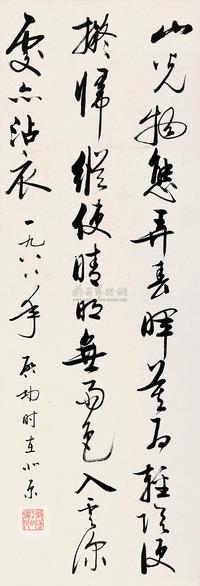 山光物態弄春暉莫為輕陰便
擬歸縱使晴明無雨色入雲深
處亦沾衣 一九八八年 啟功時在北京